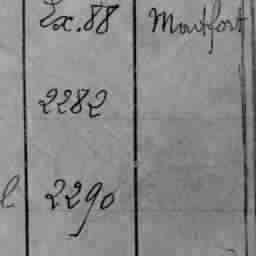 Ex. 88 Montfort
2282
2290